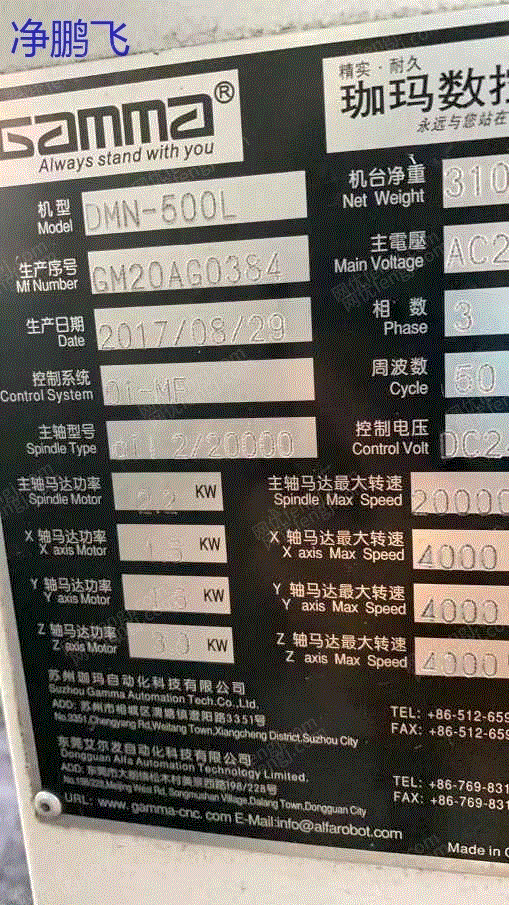 净鹏飞
GAMMA®
Always stand with you
精实·耐久
珈玛数控
永远与您站在
机型 DMN-500L
Model
机台净重 310
Net Weight
生产序号 GM20AG0384
Mf Number
主電壓 AC2
Main Voltage
生产日期 2017/08/29
Date
相数 3
Phase
控制系统 0i-MF
Control System
周波数 50
Cycle
主轴型号 2/20000
Spindle Type
控制电压 DC2
Control Volt
主轴马达功率 2.2 KW
Spindle Motor
主轴马达最大转速 20000
Spindle Max Speed
X 轴马达功率 KW
X axis Motor
X 轴马达最大转速 4000
X axis Max Speed
Y 轴马达功率 KW
Y axis Motor
Y 轴马达最大转速 4000
Y axis Max Speed
Z 轴马达功率 3.0 KW
Z axis Motor
Z 轴马达最大转速 4000
Z axis Max Speed
苏州珈玛自动化科技有限公司
Suzhou Gamma Automation Tech.Co.,Ltd.
ADD: 苏州市相城区渭塘镇澄阳路3351号
No.3351,Chengyang Rd,Weitang Town,Xiangcheng District,Suzhou City
TEL: +86-512-659
FAX: +86-512-659
东莞艾尔发自动化科技有限公司
Dongguan Alfa Automation Technology Limited.
ADD: 东莞市大朗镇松木村美景西路198/228号
No.198/228,Meijing West Rd. Songmushan Village,Dalang Town,Dongguan City
TEL: +86-769-831
FAX: +86-769-831
URL: www.gamma-cnc.com E-Mail:info@alfarobot.com
Made in C